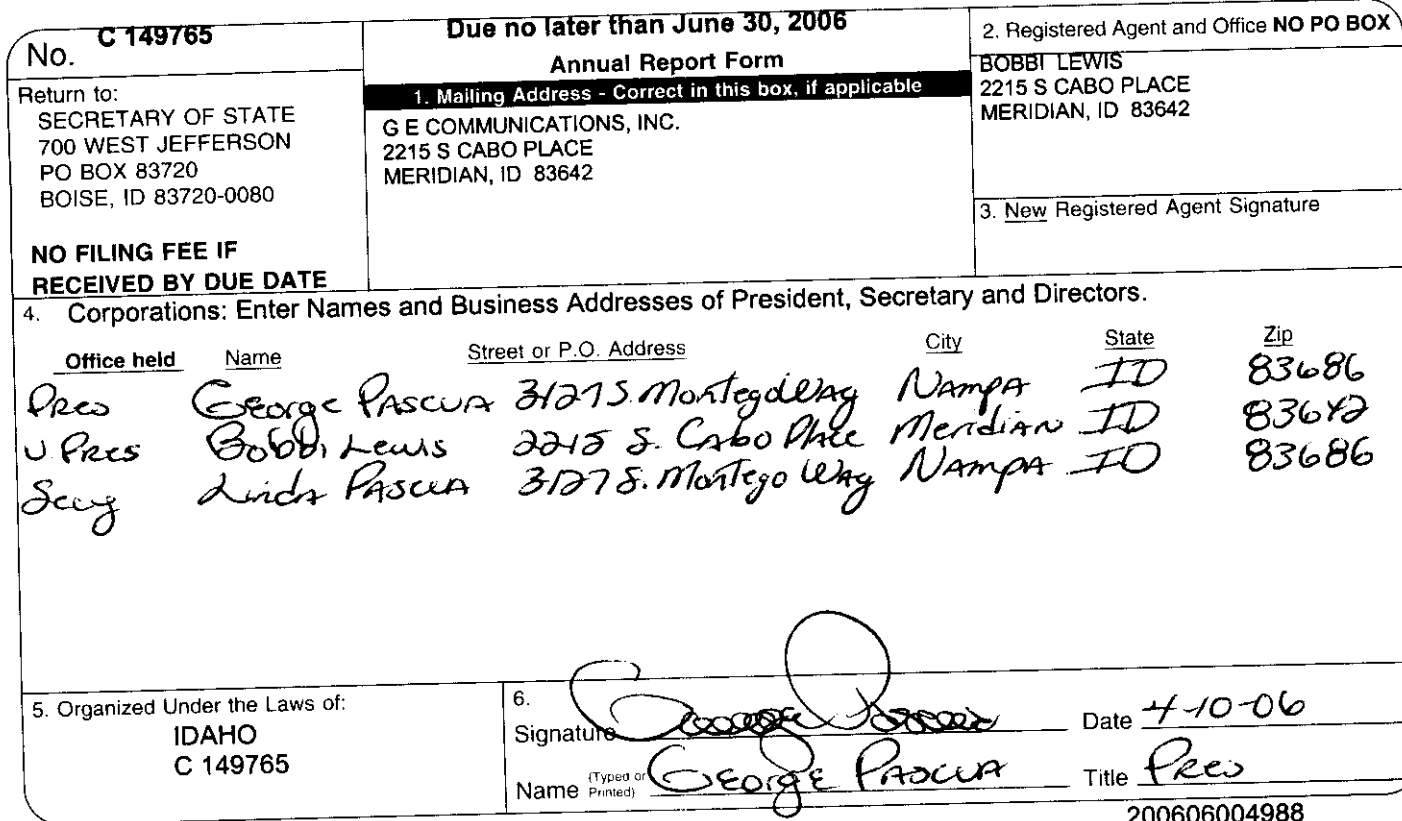 No. C 149765
Return to:
SECRETARY OF STATE
700 WEST JEFFERSON
PO BOX 83720
BOISE, ID 83720-0080
NO FILING FEE IF
RECEIVED BY DUE DATE
Due no later than June 30, 2006
Annual Report Form
1. Mailing Address - Correct in this box, if applicable
G E COMMUNICATIONS, INC.
2215 S CABO PLACE
MERIDIAN, ID 83642
2. Registered Agent and Office NO PO BOX
BOBBI LEWIS
2215 S CABO PLACE
MERIDIAN, ID 83642
3. New Registered Agent Signature
4. Corporations: Enter Names and Business Addresses of President, Secretary and Directors.
Office held Name Street or P.O. Address City State Zip
Pres George Pascua 3127 S. Montego Way Nampa ID 83686
V. Pres Bobbi Lewis 2215 S. Cabo Place Meridian ID 83642
Secy Linda Pascua 3127 S. Montego Way Nampa ID 83686
5. Organized Under the Laws of:
IDAHO
C 149765
6.
Signature George Pascua Date 4-10-06
Name (Typed or Printed) George Pascua Title Pres
200606004988